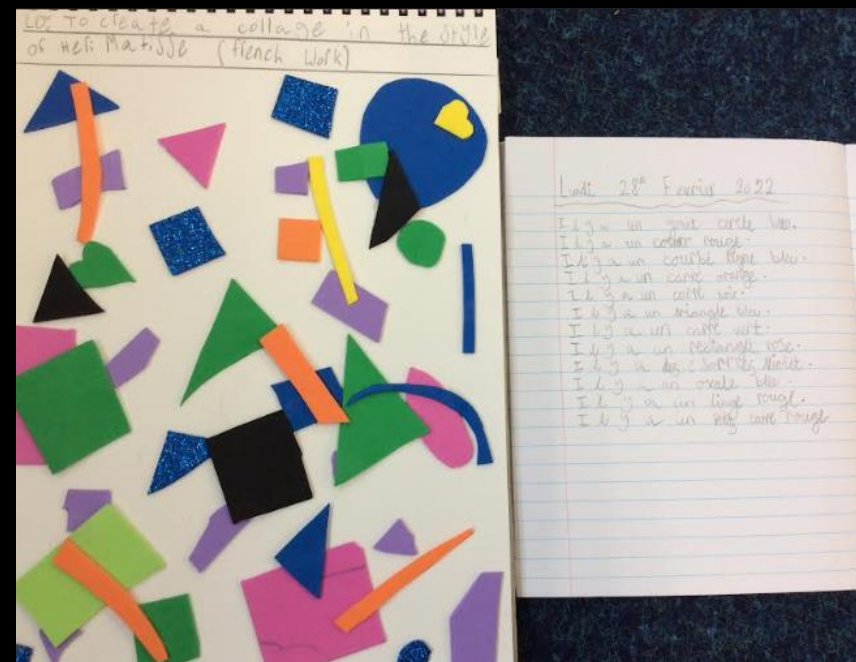 LO: To create a collage in the style
of Heri Matisse (french work)
Lundi 28th Fevrier 2022
Il y a un cercle bleu.
Il y a un rouge.
Il y a un courbe ligne bleu.
Il y a un carre orange.
Il y a un noir.
Il y a un triangle bleu.
Il y a un carre vert.
Il y a un rectangle rose.
Il y a violet.
Il y a un ovale bleu.
Il y a un rouge.
Il y a un carre rouge